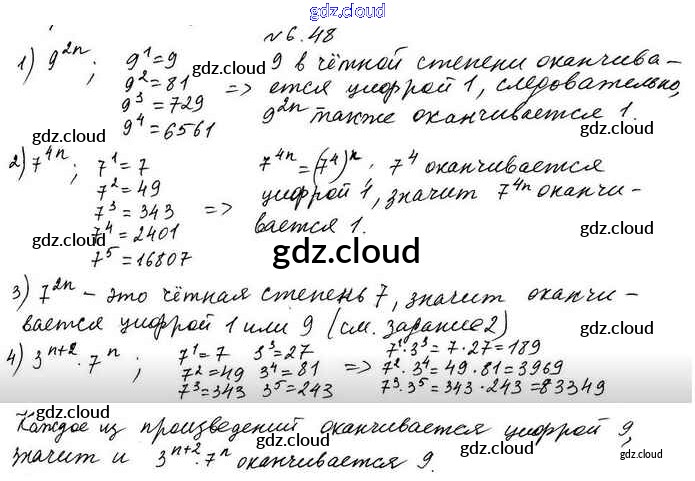 gdz.cloud
№6.48
1) 9^{2n}; 9^1=9 9 в чётной степени оканчива-
gdz.cloud 9^2=81 => ется цифрой 1, следовательно,
9^3=729 9^{2n} также оканчивается 1.
9^4=6561
gdz.cloud gdz.cloud
2) 7^{4n}; 7^1=7 7^{4n}=(7^4)^n; 7^4 оканчивается
7^2=49 цифрой 1, значит 7^{4n} оканчи-
7^3=343 => вается 1.
7^4=2401
7^5=16807
gdz.cloud gdz.cloud
gdz.cloud
gdz.cloud gdz.cloud
3) 7^{2n} - это чётная степень 7, значит оканчи-
вается цифрой 1 или 9 (см. задание 2)
4) 3^{n+2}·7^n; 7^1=7 3^3=27 7^1·3^3=7·27=189
7^2=49 3^4=81 => 7^2·3^4=49·81=3969
7^3=343 3^5=243 7^3·3^5=343·243=83349
gdz.cloud gdz.cloud gdz.cloud
Каждое из произведений оканчивается цифрой 9,
gdz.cloud gdz.cloud gdz.cloud
значит и 3^{n+2}·7^n оканчивается 9.
gdz.cloud gdz.cloud